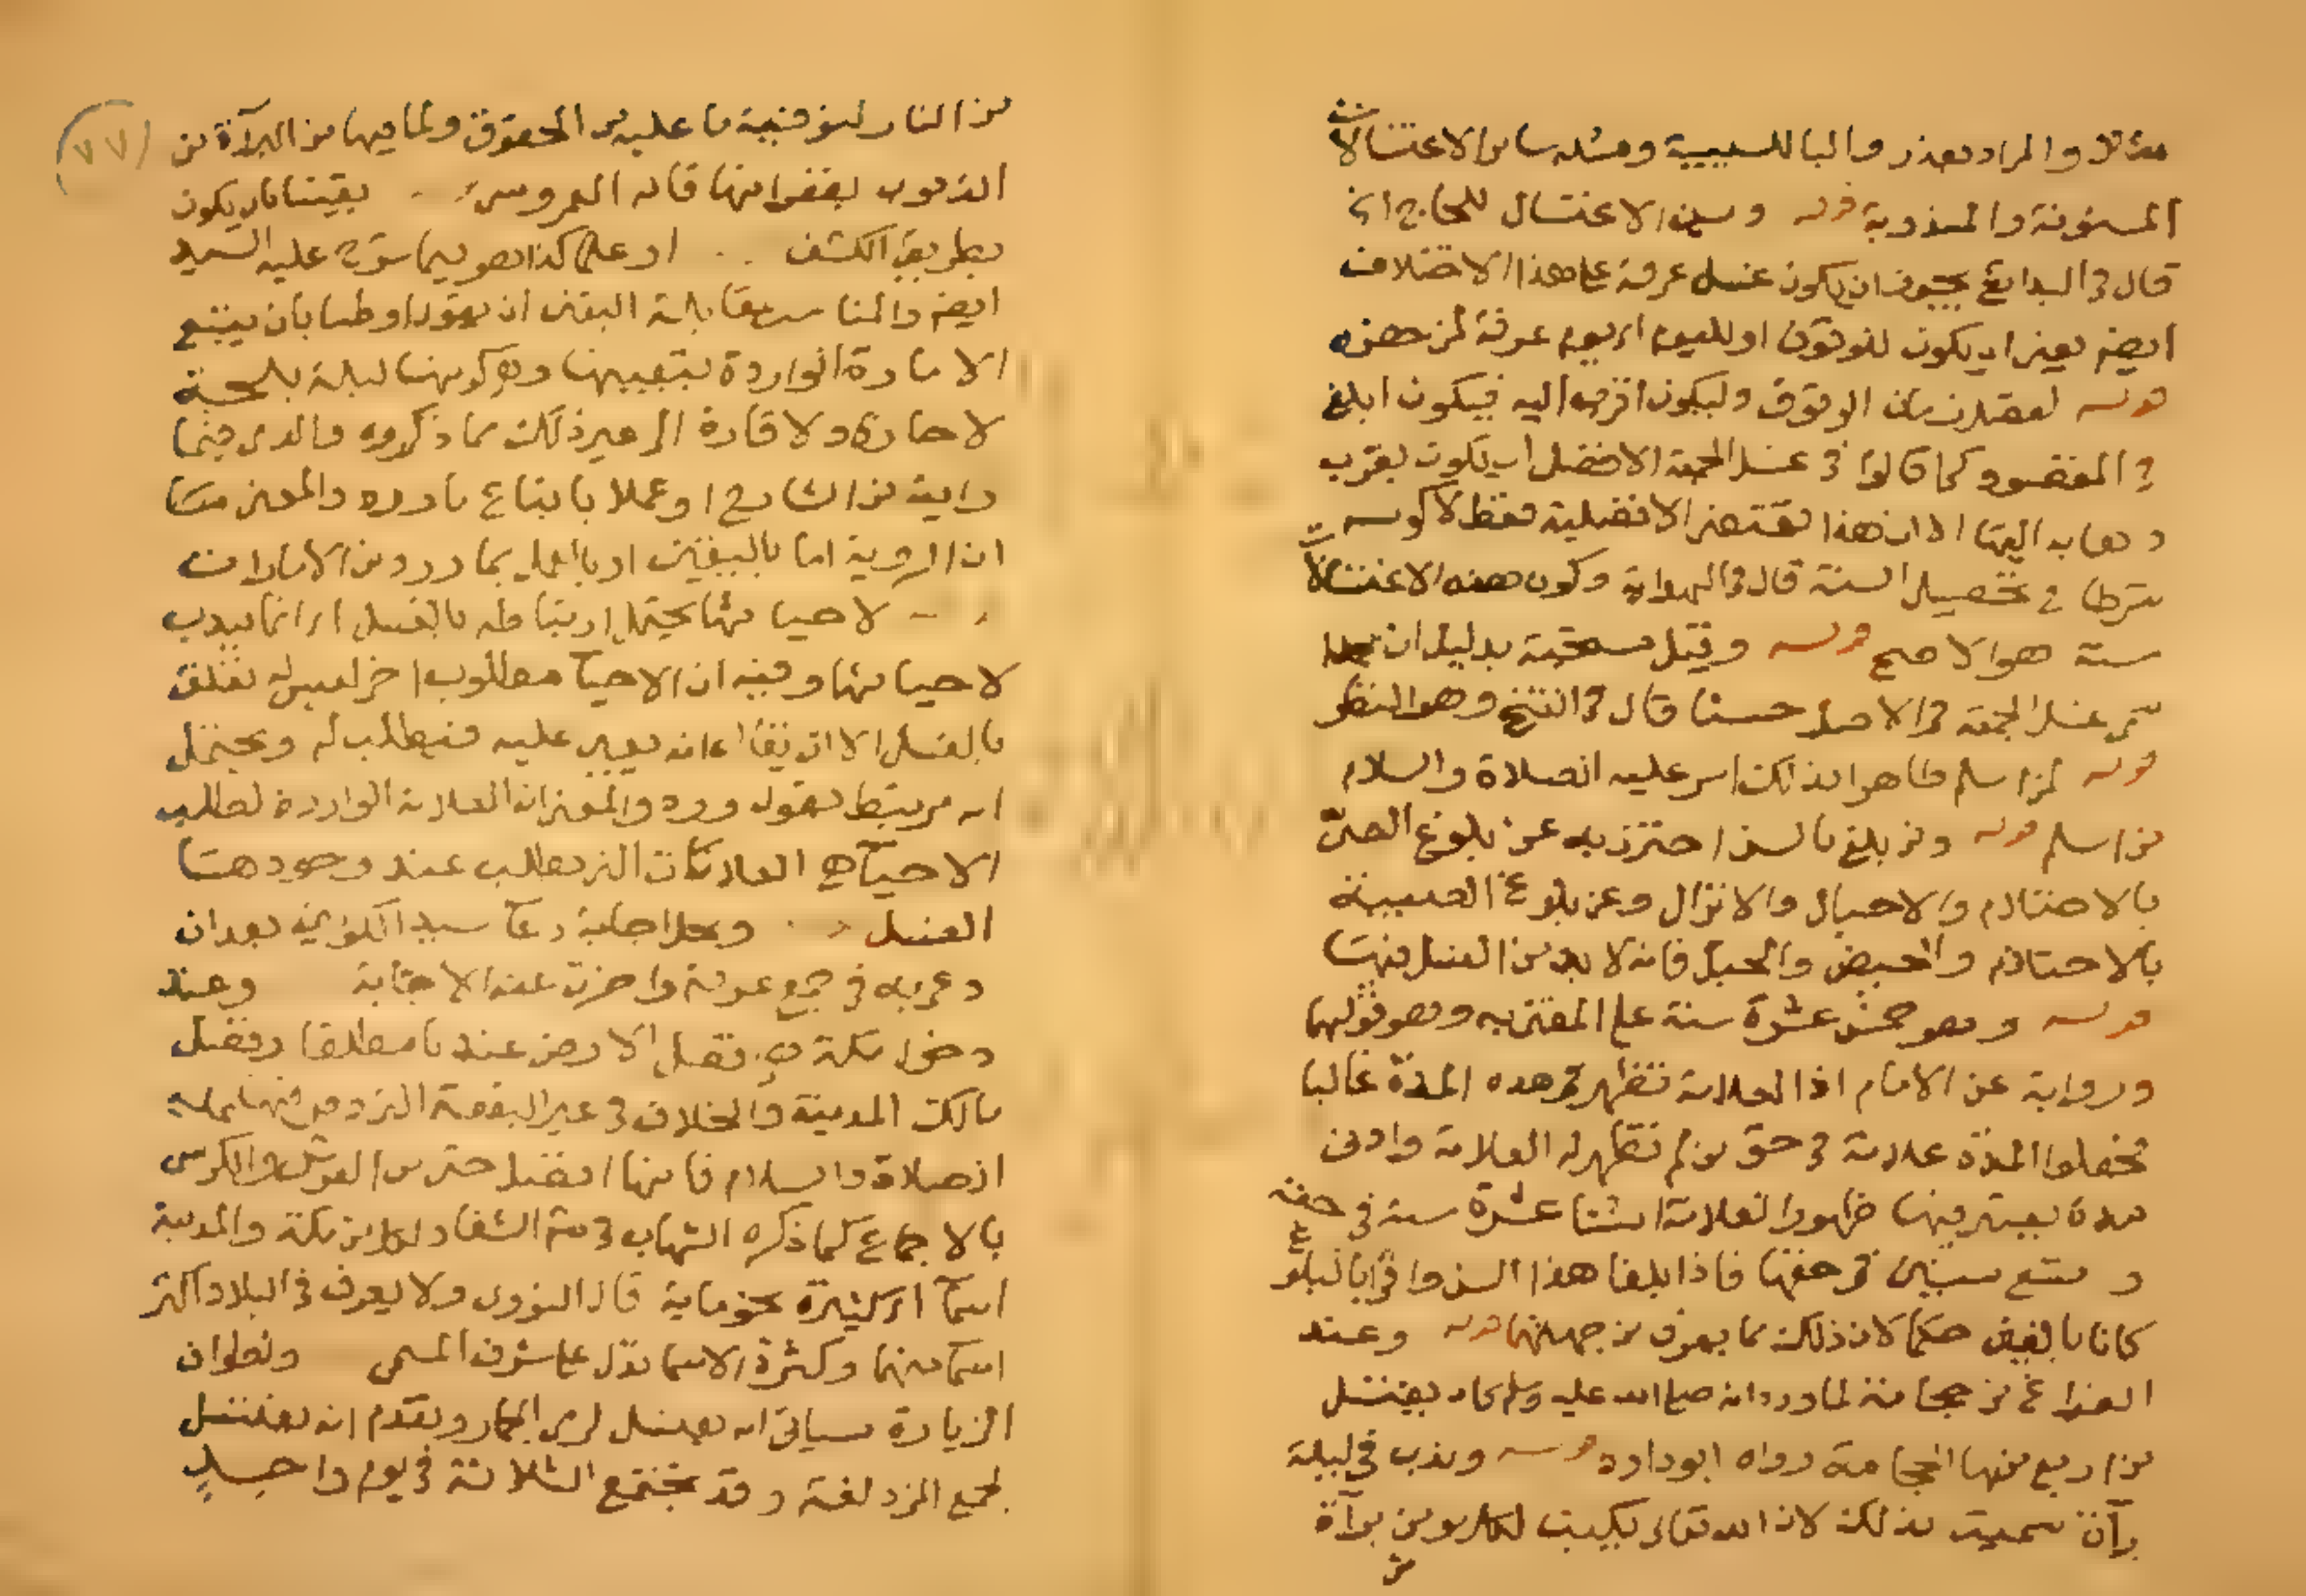 مثالا والمراد بعذر والبا للسببية ومثله سائر الاغتسالات
المسنونة والمندوبة قوله وسن الاغتسال للحاج الخ
قال في البدائع يجوز ان يكون غسل عرفة على هذا الاختلاف
ايضا يعني ان يكون للوقوف او لليوم اي يوم عرفة لمن حضره
قوله لفضل زمان الوقوف وليكون اقرب اليه فيكون ابلغ
في المقصود كما قالوا في غسل الجمعة الافضل ان يكون بقرب
ذهابه اليها الا ان هذا يقتضي الافضلية فقط لا كونه
شرطا في تحصيل السنة قال في الهداية وكون هذه الاغتسالات
سنة هو الاصح قوله وقيل مستحبة بدليل ان محمدا
سمى غسل الجمعة في الاصل حسنا قال في الفتح وهو النظر
قوله لمن اسلم طاهرا بذلك امر عليه الصلاة والسلام
من اسلم قوله ومن بلغ بالسن احترز به عن بلوغ الصبي
بالاحتلام والاحبال والانزال وعن بلوغ الصبية
بالاحتلام والحيض والحبل فانه لا بد من الغسل فيها
قوله وهو خمس عشرة سنة على المفتى به وهو قولهما
ورواية عن الامام اذ العلامة تظهر في هذه المدة غالبا
فجعلوا المدة علامة في حق من لم تظهر له العلامة وادنى
مدة يعتبر فيها ظهور العلامة اثنتا عشرة سنة في حقه
و تسع سنين في حقها فاذا بلغا هذا السن واقرا بالبلوغ
كانا بالغين حكما لان ذلك مما يعرف من جهتهما قوله وعند
الفراغ من حجامة لما ورد انه صلى الله عليه وسلم كان يغتسل
من اربع منها الحجامة رواه ابو داود قوله وندب في ليلة
برآة سميت بذلك لان الله تعالى يكتب لكل مومن برآة
من
من النار لتوفية ما عليه من الحقوق ولما فيها من البرآة من
الذنوب بغفرانها قاله العروسي يقينا بان يكون
بطريق الكشف او علما كذا هو فيما شرح عليه السيد
ايضا والمناسب مقابلة اليقين ان يقول او ظنا بان يتبع
الامارة الواردة بتعيينها وهو كونها ليلة بلجة
لا حارة ولا قارة الى غير ذلك مما ذكروه
ان الروية اما باليقين او بالعمل بما ورد من الامارات
لاحيائها يحتمل ارتباطه بالغسل اي انما يندب
لاحيائها وفيه ان الاحيا مطلوب اخر ليس له تعلق
بالغسل الا ان يقال انه يعين عليه فيطلب له ويحتمل
انه مرتبط بقوله ورد والمعنى ان العلامة الواردة لطلب
الاحيآ هي العلامات التي يطلب عند وجودها
الغسل ومحل اجابة دعآ سيد الكونين بعد ان
دعى به في جمع عرفة واخرت عنه الاجابة وعند
دخول مكة هي افضل الارض عندنا مطلقا وفضل
مالك المدينة والخلاف في غير البقعة التي دفن فيها عليه
الصلاة والسلام فانها افضل حتى من العرش والكرسي
بالاجماع كما ذكره الشهاب في الشفا ولكل من مكة والمدينة
اسمآ كثيرة نحو ماية قال النووي ولا يعرف في البلاد اكثر
اسمآ منها وكثرة الاسما تدل على شرف المسمى ولطواف
الزيارة سياتي انه يغتسل لرمي الجمار وتقدم انه يغتسل
لجمع المزدلفة وقد تجتمع الثلاثة في يوم واحد
٧٧